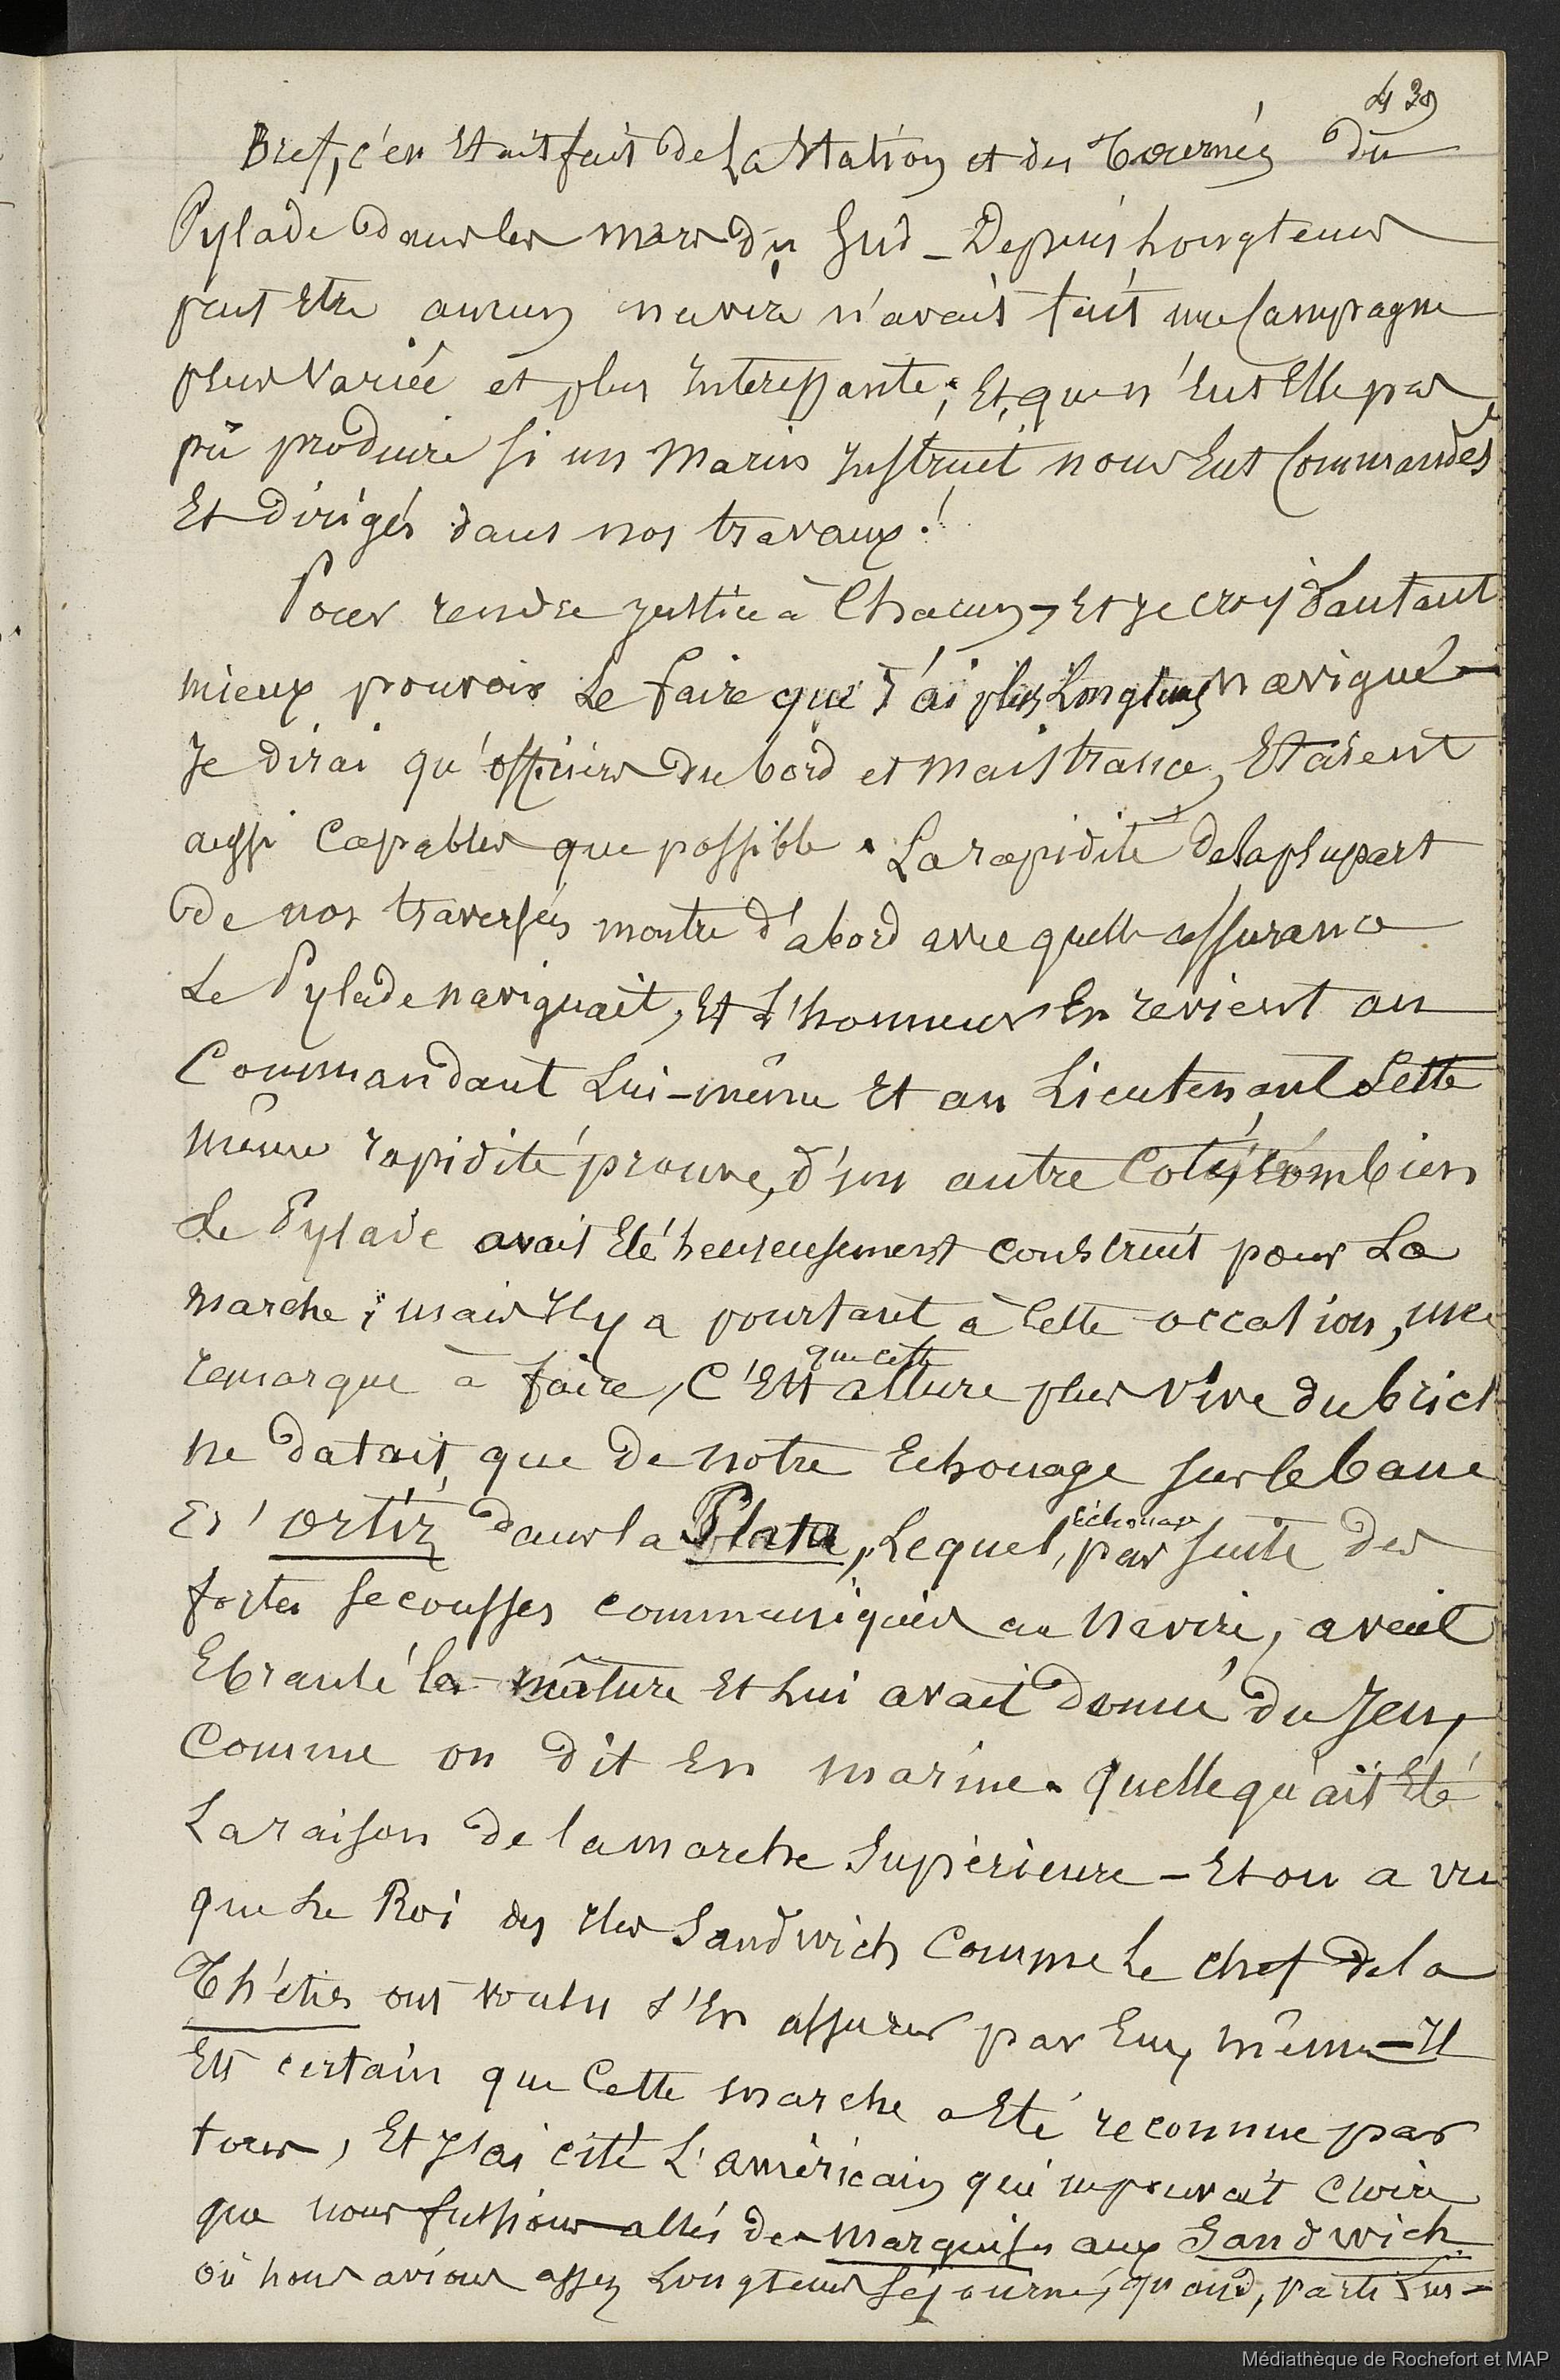 439
Bref, c'en Etait fait de La Station et des Tournées du
Pylade dans les mers du Sud _ Depuis Longtems
peut Etre aucun navire n'avait fait une Campagne
plus Variée et plus Interessante ; Et, que n'Eut Elle pas
pû produire si un Marin Instruit nous Eut Commandés
Et dirigés dans nos travaux !
Pour rendre justice à Chacun, Et je croy d'autant
mieux pouvoir Le faire que j'ai plus Longtems navigué —
Je dirai qu'officiers du bord et maistrance, Etaient
aussi Capables que possible . La rapidité de la plupart
de nos traversées montre d'abord avec quelle assurance
Le Pylade naviguait, Et L'honneur En revient au
Commandant Lui-même Et au Lieutenant Cette
même rapidité prouve, d'un autre Coté, combien
Le Pylade avait Eté heureusement construit pour La
marche ; mais Il y a pourtant à Cette occasion, une
remarque à faire, C'Est que cette allure plus vive du brick
ne datait que de notre Echouage sur le banc
d'ortiz dans la Plata, Lequel Echouage, par suite des
fortes secousses communiquées au Navire, avait
Ebranlé la mâture Et Lui avait donné du Jeu,
Comme on dit En marine. Quelle qu'ait Eté
La raison de la marche Supérieure — Et on a vu
que Le Roi des Iles Sandwich Comme Le chef de la
Thétis ont voulu s'En assurer par Eux mêmes — Il
Est certain que Cette marche a Eté reconnue par
tous, Et J'ai cité L'américain qui ne pouvait croire
que nous fussions allés des Marquises aux Sandwich
où nous avions assez Longtems séjourné, quand, parti Sur-
Médiathèque de Rochefort et MAP